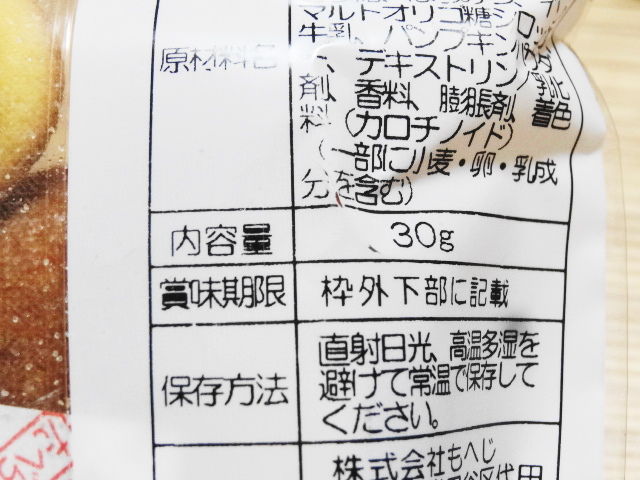 マルトオリゴ糖シロッ
牛乳、パンプキン
原材料名
、デキストリン
剤、香料、膨脹剤、着色
料(カロチノイド)
(一部に小麦・卵・乳成
分を含む)
内容量
30g
賞味期限
枠外下部に記載
保存方法
直射日光、高温多湿を
避けて常温で保存して
ください。
株式会社もへじ